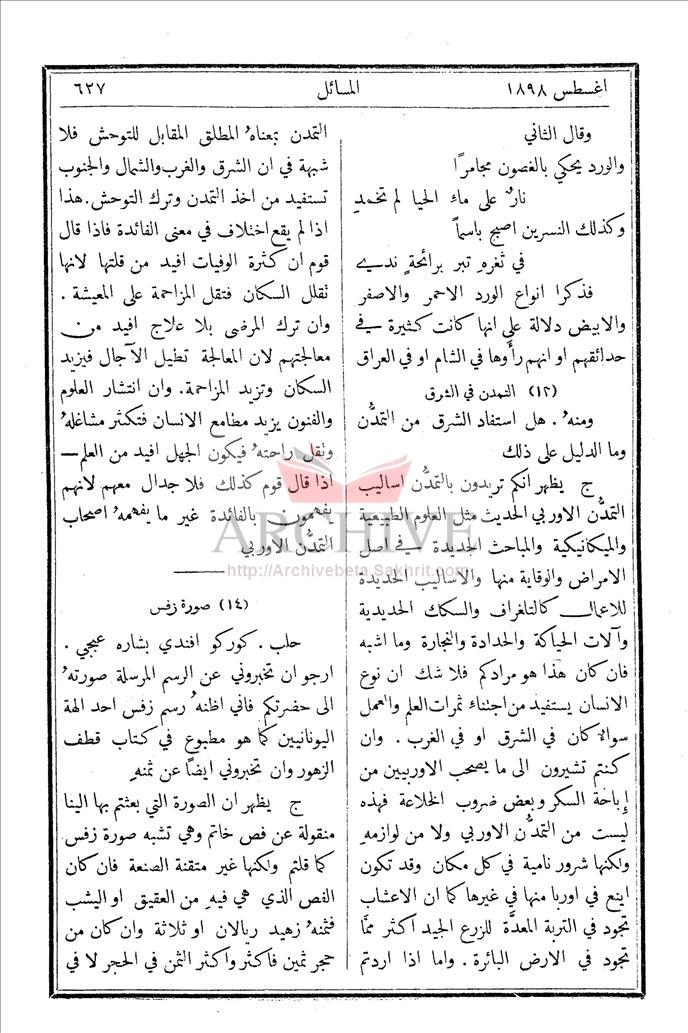 اغسطس ١٨٩٨
المسائل
٦٢٧
وقال الثاني
والورد يحكي بالغصون مجامرًا
نارٌ على ماء الحيا لم تخمدِ
وكذلك النسرين اصبح باسماً
في ثغرهِ تبر برائحةٍ ندي
فذكرا انواع الورد الاحمر والاصفر
والابيض دلالة على انها كانت كثيرة في
حدائقهم او انهم رأوها في الشام او في العراق
(١٣) التمدن في الشرق
ومنهُ . هل استفاد الشرق من التمدُّن
وما الدليل على ذلك
ج يظهر انكم تريدون بالتمدُّن اساليب
التمدُّن الاوربي الحديث مثل العلوم الطبيعية
والميكانيكية والمباحث الجديدة في اصل
الامراض والوقاية منها والاساليب الجديدة
للاعمال كالتلغراف والسكك الحديدية
وآلات الحياكة والحدادة والنجارة وما اشبه
فان كان هذا هو مرادكم فلا شك ان نوع
الانسان يستفيد من اجتناء ثمرات العلم والعمل
سوالا كان في الشرق او في الغرب . وان
كنتم تشيرون الى ما يصحب الاوربيين من
إباحة السكر وبعض ضروب الخلاعة فهذه
ليست من التمدُّن الاوربي ولا من لوازمهِ
ولكنها شرور نامية في كل مكان وقد تكون
اينع في اوربا منها في غيرها كما ان الاعشاب
تجود في التربة المعدَّة للزرع الجيد اكثر ممَّا
تجود في الارض البائرة . واما اذا اردتم
التمدن بمعناهُ المطلق المقابل للتوحش فلا
شبهة في ان الشرق والغرب والشمال والجنوب
تستفيد من اخذ التمدن وترك التوحش. هذا
اذا لم يقع اختلاف في معنى الفائدة فاذا قال
قوم ان كثرة الوفيات افيد من قلتها لانها
نقلل السكان فتقل المزاحمة على المعيشة .
وان ترك المرضى بلا علاج افيد من
معالجتهم لان المعالجة تطيل الآجال فيزيد
السكان وتزيد المزاحمة. وان انتشار العلوم
والفنون يزيد مطامع الانسان فتكثر مشاغلهُ
ونقل راحتهُ فيكون الجهل افيد من العلم —
اذا قال قوم كذلك فلا جدال معهم لانهم
يفهمون بالفائدة غير ما يفهمهُ اصحاب
التمدُّن الاوربي
ARCHIVE
http://Archivebeta.Sakhrit.com
(١٤) صورة زفس
حلب . كوركو افندي بشاره عبجي .
ارجو ان تخبروني عن الرسم المرسلة صورتهُ
الى حضرتكم فاني اظنهُ رسم زفس احد الهة
اليونانيين كما هو مطبوع في كتاب قطف
الزهور وان تخبروني ايضًا عن ثمنهِ
ج يظهر ان الصورة التي بعثتم بها الينا
منقولة عن فص خاتم وهي تشبه صورة زفس
كما قلتم ولكنها غير متقنة الصنعة فان كان
الفص الذي هي فيهِ من العقيق او اليشب
فثمنهُ زهيد ريالان او ثلاثة وان كان من
حجر ثمين فاكثر واكثر الثمن في الحجر لا في